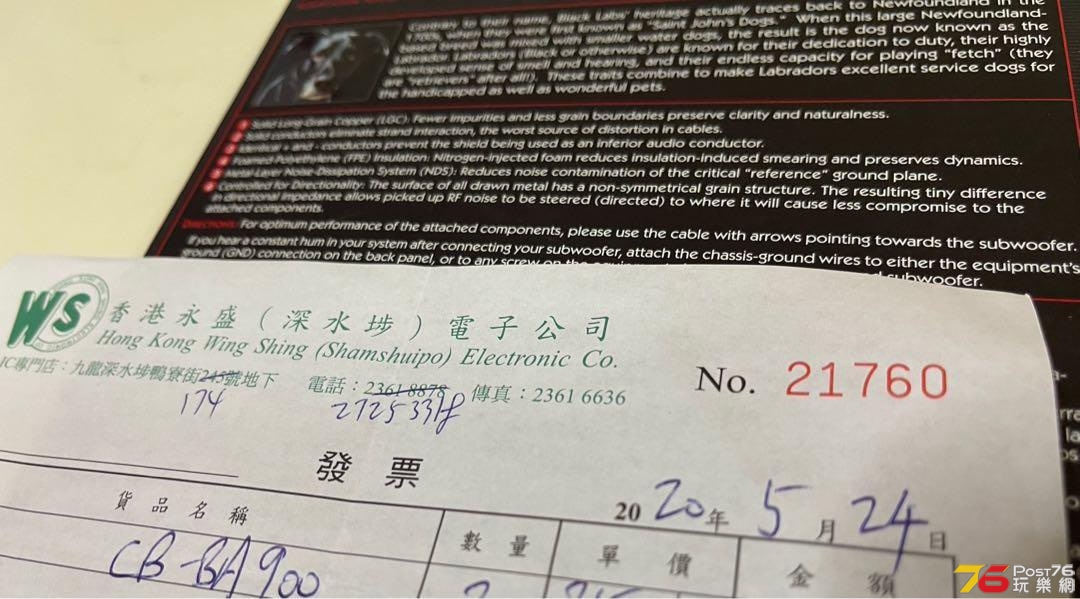 Contrary to their name, Black Labs' heritage actually traces back to Newfoundland in the
1700s, when they were first known as "Saint John's Dogs." When this large Newfoundland-
based breed was mixed with smaller water dogs, the result is the dog now known as the
Labrador. Labradors (Black or otherwise) are known for their dedication to duty, their highly
developed sense of smell and hearing, and their endless capacity for playing "fetch" (they
are "retrievers" after all!). These traits combine to make Labradors excellent service dogs for
the handicapped as well as wonderful pets.
Solid Long-Grain Copper (LGC): Fewer impurities and less grain boundaries preserve clarity and naturalness.
Solid conductors eliminate strand interaction, the worst source of distortion in cables.
+ and - conductors prevent the shield being used as an inferior audio conductor.
Foamed-Polyethylene (FPE) Insulation: Nitrogen-injected foam reduces insulation-induced smearing and preserves dynamics.
Layer Noise-Dissipation System (NDS): Reduces noise contamination of the critical "reference" ground plane.
Controlled for Directionality: The surface of all drawn metal has a non-symmetrical grain structure. The resulting tiny difference
in directional impedance allows picked up RF noise to be steered (directed) to where it will cause less compromise to the
attached components.
DIRECTIONS: For optimum performance of the attached components, please use the cable with arrows pointing towards the subwoofer.
If you hear a constant hum in your system after connecting your subwoofer, attach the chassis-ground wires to either the equipment's
ground (GND) connection on the back panel, or to any screw on the
subwoofer.
WS
香港永盛(深水埗)電子公司
Hong Kong Wing Shing (Shamshuipo) Electronic Co.
IC專門店:九龍深水埗鴨寮街245號地下 電話:2361 8878 傳真:2361 6636
174 27253318
No. 21760
發票
2020年5月24日
貨品名稱 數量 單價 金額
CB-BA900
76 POST76
玩樂網